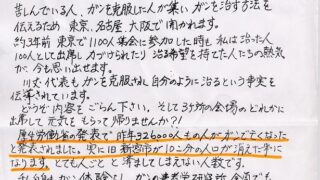 苦しんでいる人、ガンを克服した人が集い ガンを治す方法を
伝えるため 東京、名古屋、大阪で 開かれます。
約3年前 東京で1100人集会に参加した時も 私は治った人
100人として出席し 力づけられたり 治る希望を持てた人たちの熱気
が、今も思い出せます。
川丈代表も ガンを克服され 自分のように治るという事実を
伝導されています。
どうぞ 内容をごらん下さい。そして3ヶ所の会場のどれかに
出席して 元気を もらって帰りませんか?!
厚生労働省の発表で 昨年326000人もの人がガンで亡くなった
と発表されました。実に旧新潟市が10こ分の人口が消えた事に
なります。とても人ごと と 済ましてしまえない人数です。